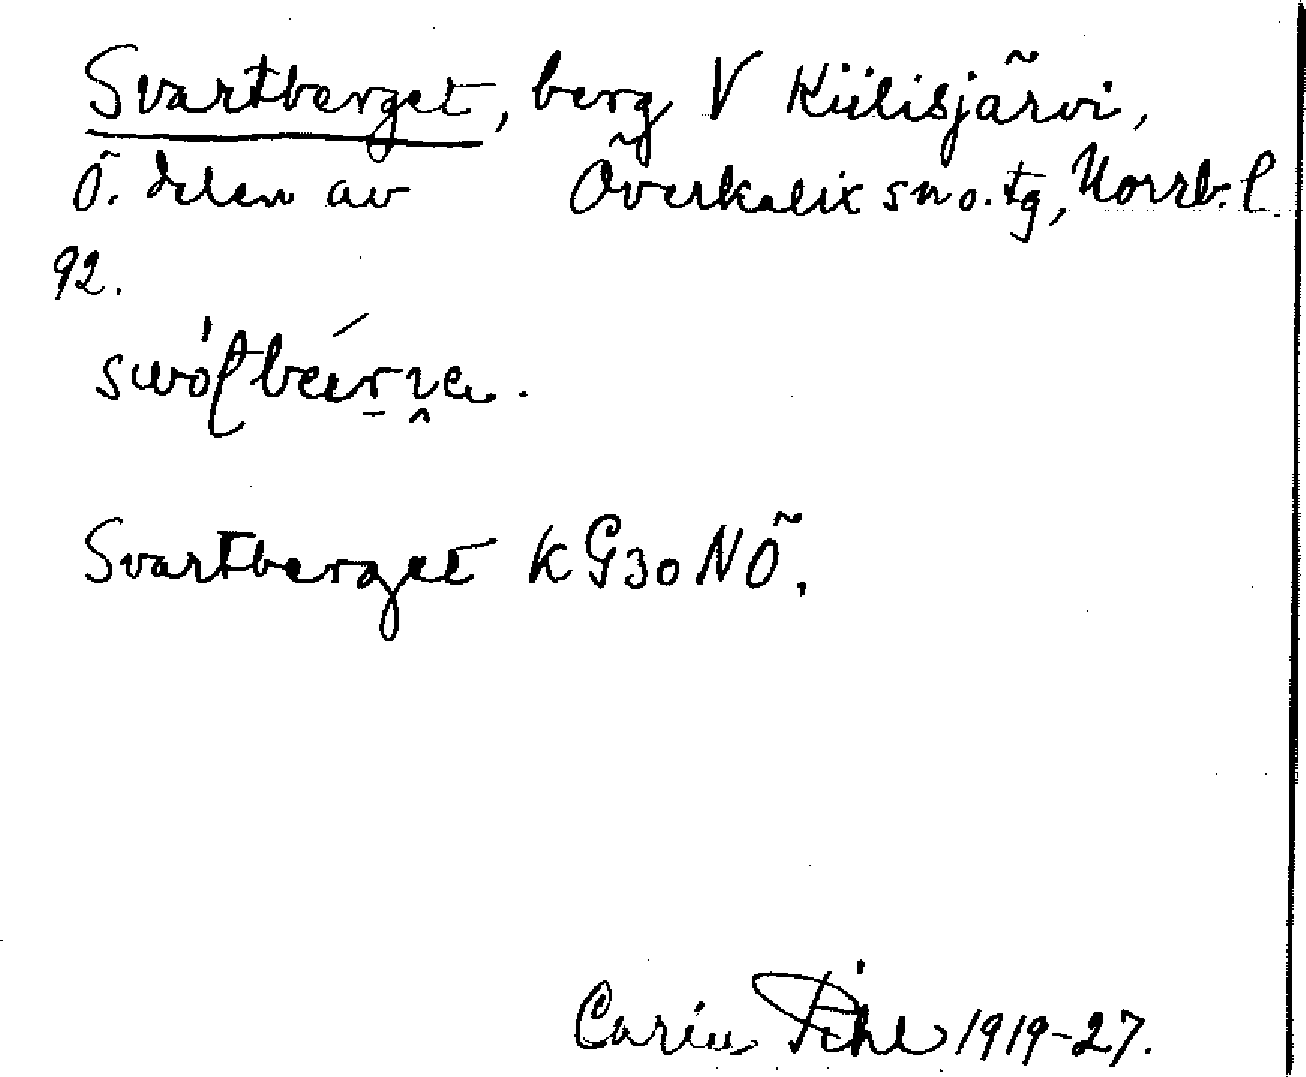 Svartberget, berg V Kiilisjärvi,
Ö. delen av Överkalix sn o. tg, Norrb. l.
92.
Svartberget KG30NÖ.
Carin Pihl 1919-27.